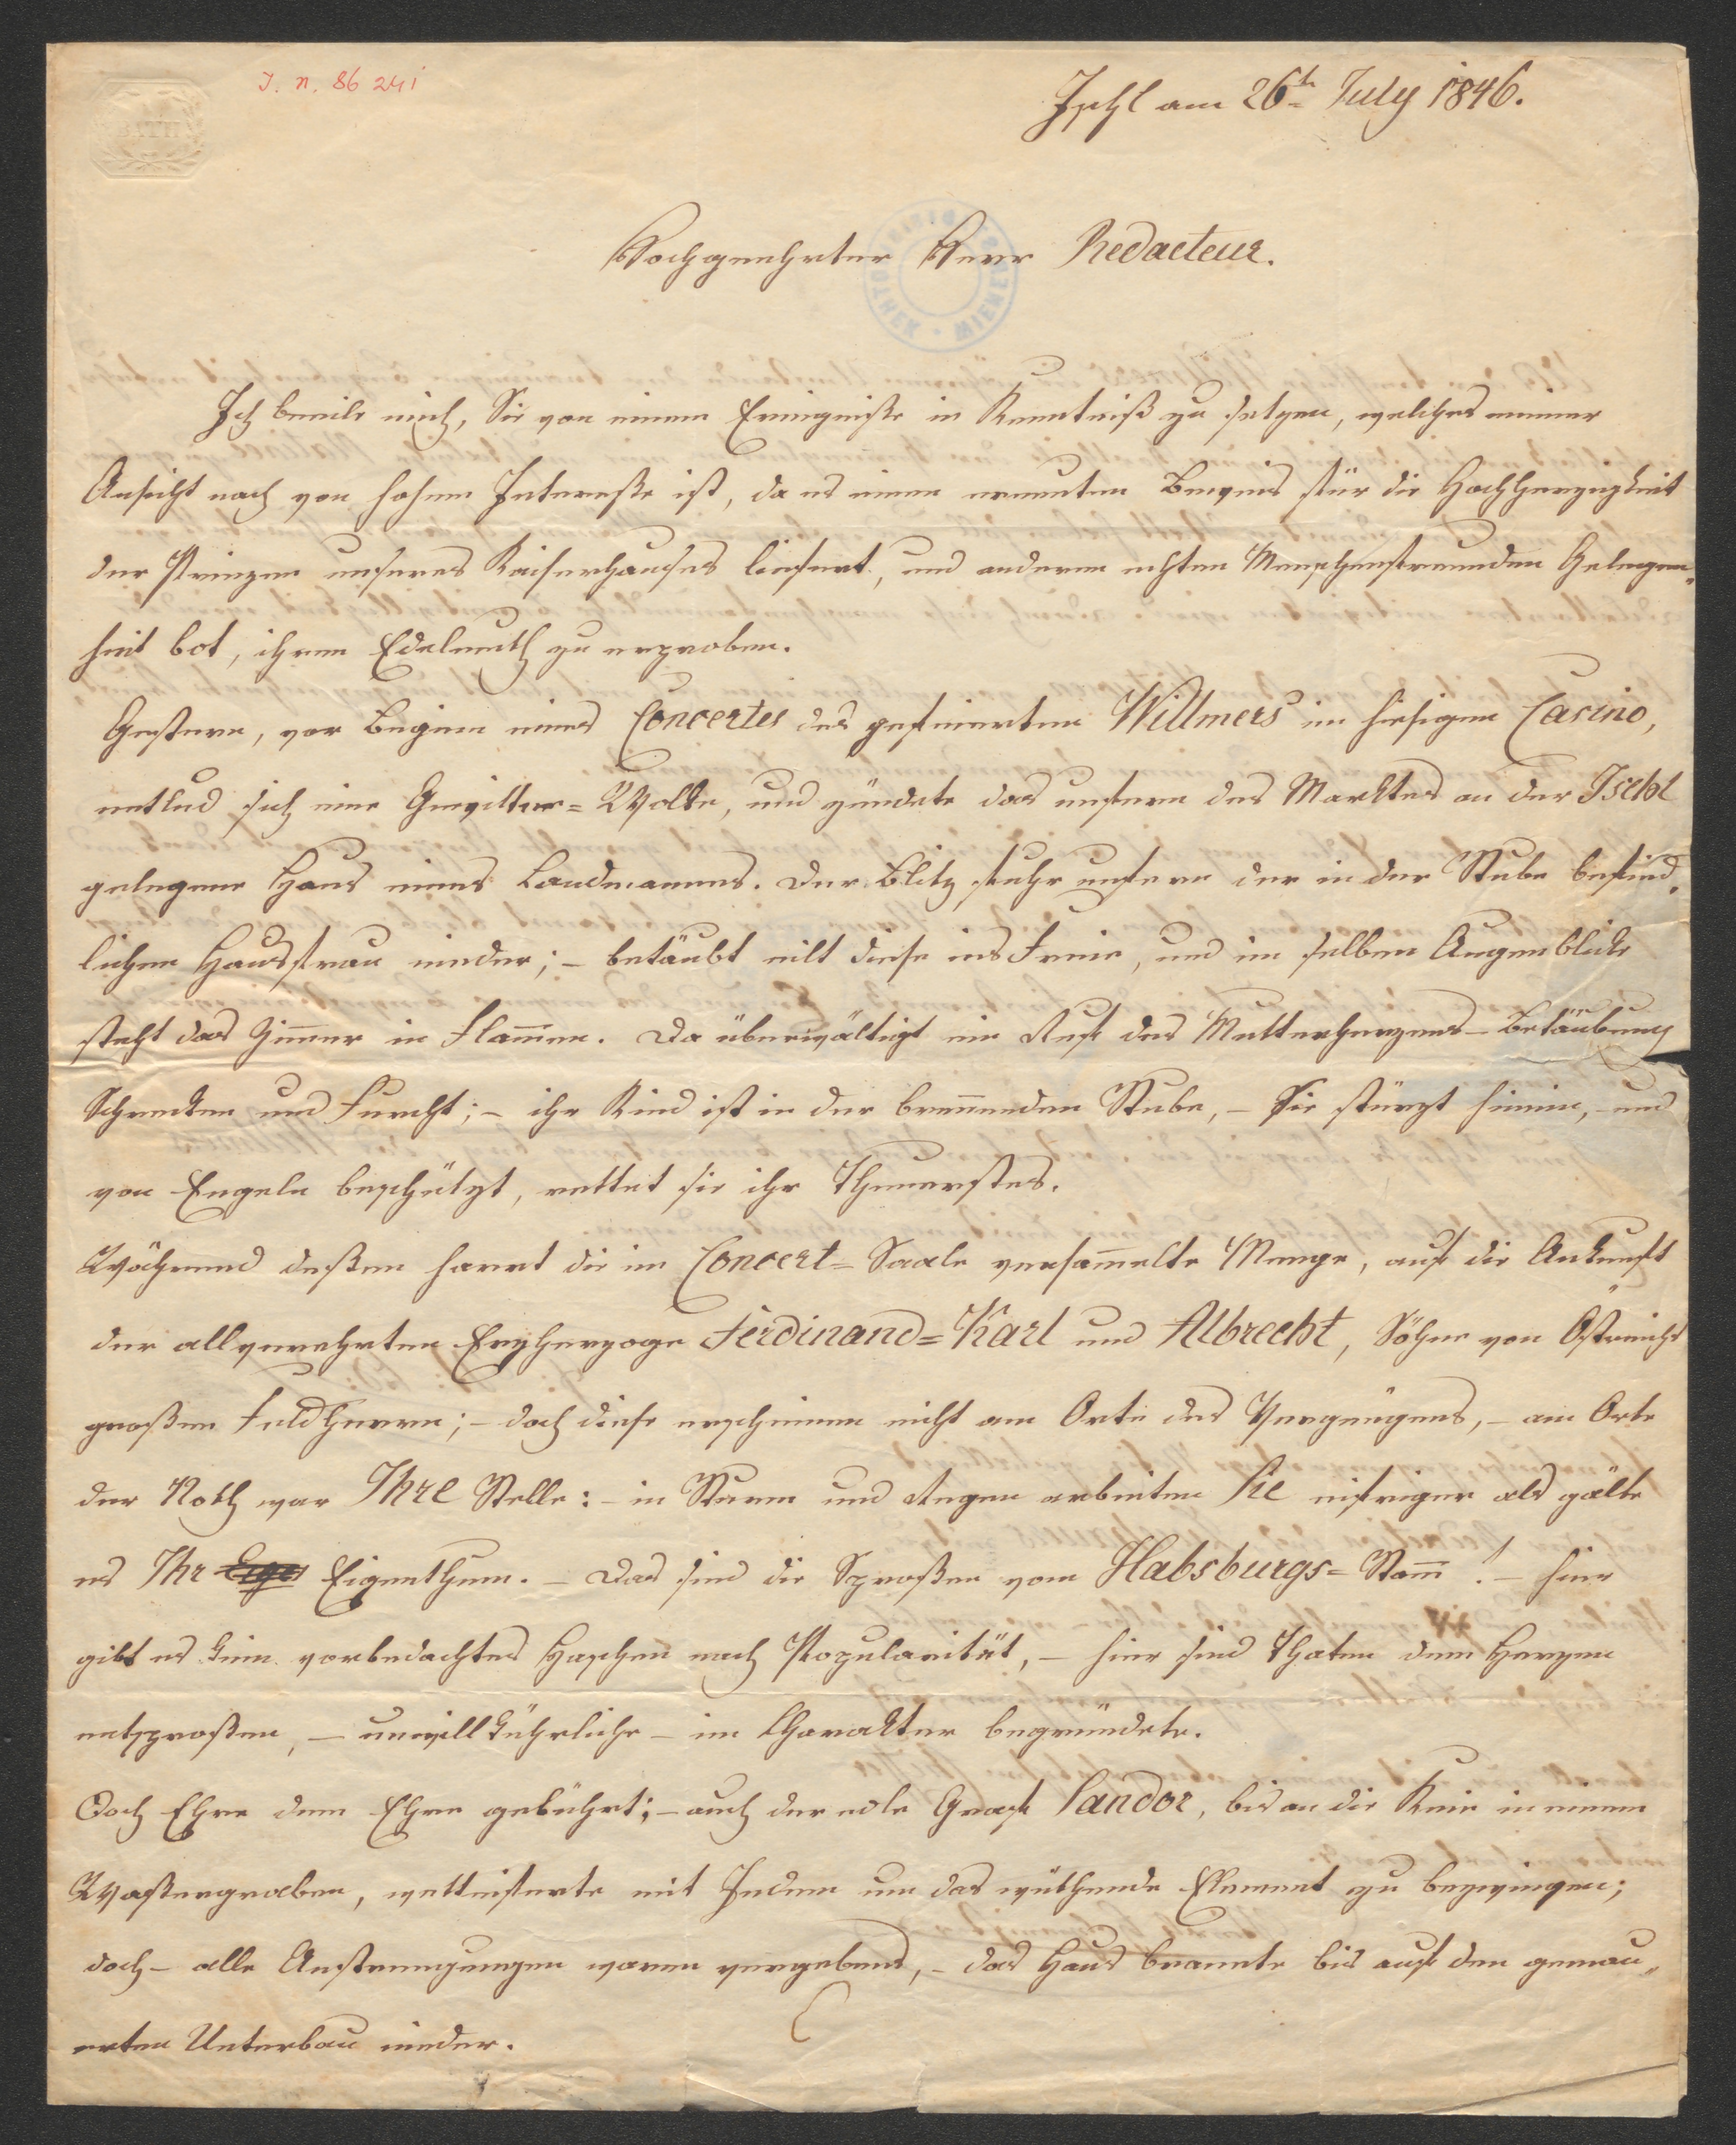 J. n. 86 241
BATH
Ischl am 26t July 1846.
Hochgeehrter Herr Redacteur.
Ich beeile mich, Sie von einem Ereigniße in Kenntniß zu setzen, welches meiner
Ansicht nach von hohem Intereße ist, da es einen erneuten Beweis für die Hochherzigkeit
der Prinzen unseres Kaiserhauses liefert, und anderen echten Menschenfreunden Gelegen„
heit bot, ihren Edelmuth zu erproben.
Gestern, vor Beginn eines Concertes des gefeierten Willmers im hiesigen Casino,
entlud sich eine Gewitter=Wolke, und zündete das unfern des Marktes an der Ischl
gelegene Haus eines Landmannes. Der Blitz fuhr unfern der in der Stube befind„
lichen Hausfrau nieder; – betäubt eilt diese ins Freie, und im selben Augenblicke
steht das Zim̄er in Flam̄en. Da überwältigt ein Ruf des Mutterherzens – Betäubung
Schrecken und Furcht; – ihr Kind ist in der bren̄enden Stube, – Sie stürzt hinein, – und
von Engeln beschützt, rettet sie ihr Theuerstes.
Während deßen harrt die im Concert=Saale versam̄elte Menge, auf die Ankunft
der allverehrten Erzherzoge Ferdinand=Karl und Albrecht, Söhne von Östreichs
großem Feldherrn; – doch diese erscheinen nicht am Orte des Vergnügens, – am Orte
der Noth war Ihre Stelle: – in Sturm und Regen arbeiten Sie eifriger als gälte
es Ihr Eigenthum. – Das sind die Sproßen vom Habsburgs=Stam̄ ! – hier
gibt es kein vorbedachtes Haschen nach Popularität, – hier sind Thaten dem Herzen
entsproßen, – unwillkührliche – im Charakter begründete.
Doch Ehre dem Ehre gebührt; – auch der edle Graf Sandor, bis an die Knie in einem
Waßergraben, wetteiferte mit Jedem um das wüthende Element zu bezwingen;
doch – alle Anstrengungen waren vergebens, – das Haus brannte bis auf den gemau„
erten Unterbau nieder.